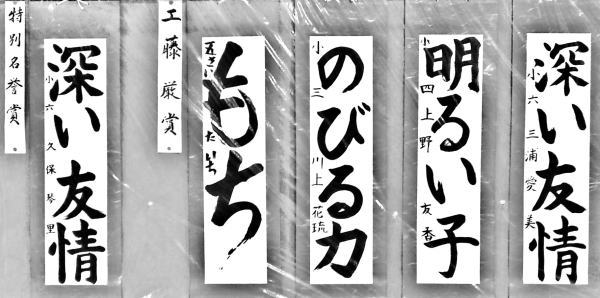 深い友情
小六 三浦愛美
明るい子
小四 上野友香
のびる力
小三 川上花琉
もち
五さい
工藤厳賞
深い友情
小六 久保琴里
特別名誉賞